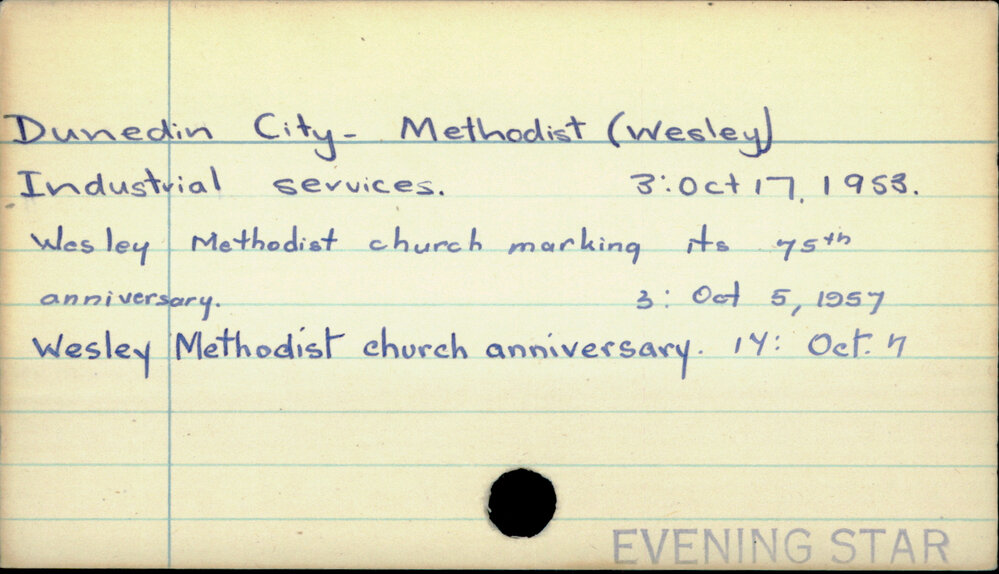 Dunedin City - Methodist (Wesley)
Industrial services. 3: Oct 17, 1953.
Wesley Methodist church marking its 75th
anniversary. 3: Oct 5, 1957
Wesley Methodist church anniversary. 14: Oct. 7
EVENING STAR